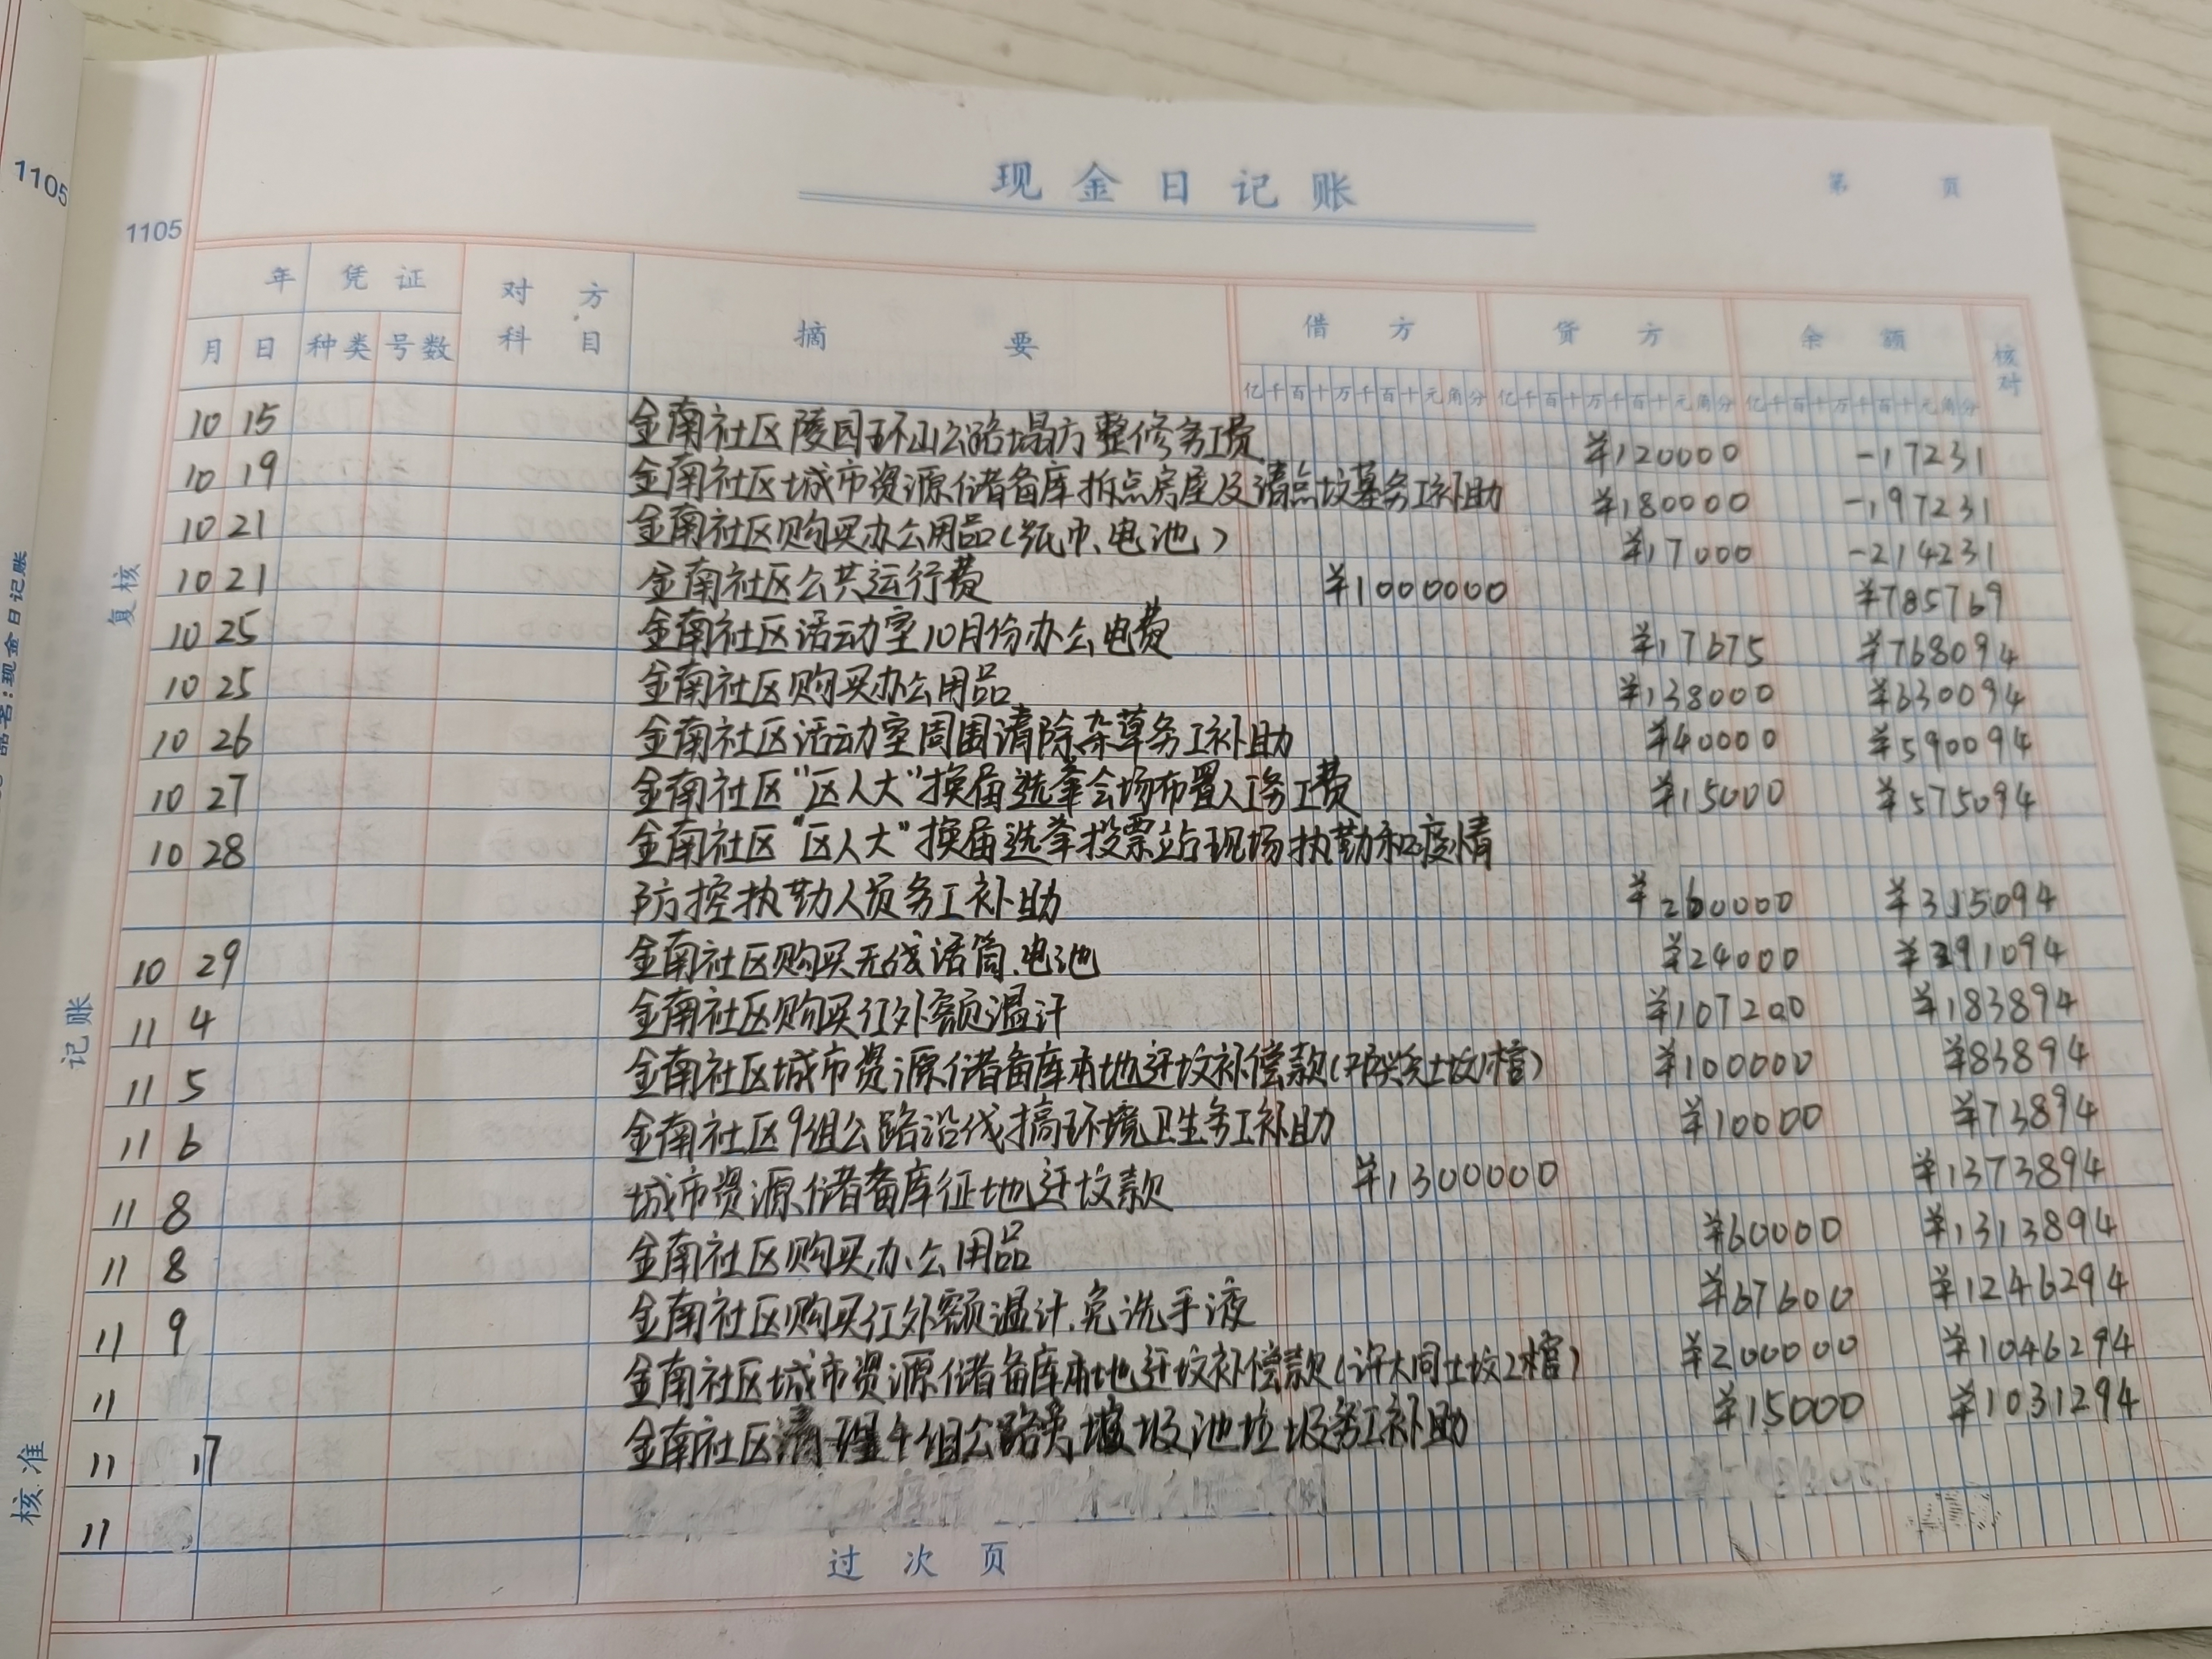 1105
1105
品名:现金日记账
复核
记账
核准
现金日记账
第 页
年 凭证 对方科目 摘要 借方 贷方 余额 核对
月 日 种类 号数 亿千百十万千百十元角分 亿千百十万千百十元角分 亿千百十万千百十元角分
10 15 金南社区陵园环山公路塌方整修务工费 ¥120000 -17231
10 19 金南社区城市资源储备库拆点房屋及清点坟墓务工补助 ¥180000 -197231
10 21 金南社区购买办公用品(纸巾、电池) ¥17000 -214231
10 21 金南社区公共运行费 ¥1000000 ¥785769
10 25 金南社区活动室10月份办公电费 ¥17675 ¥768094
10 25 金南社区购买办公用品 ¥138000 ¥630094
10 26 金南社区活动室周围清除杂草务工补助 ¥40000 ¥590094
10 27 金南社区"区人大"换届选举会场布置人工务工费 ¥15000 ¥575094
10 28 金南社区"区人大"换届选举投票站现场执勤和疫情
防控执勤人员务工补助 ¥260000 ¥315094
10 29 金南社区购买无线话筒、电池 ¥24000 ¥291094
11 4 金南社区购买红外额温计 ¥107200 ¥183894
11 5 金南社区城市资源储备库本地迁坟补偿款(土坟1棺) ¥100000 ¥83894
11 6 金南社区9组公路沿线搞环境卫生务工补助 ¥10000 ¥73894
11 8 城市资源储备库征地迁坟款 ¥1300000 ¥1373894
11 8 金南社区购买办公用品 ¥60000 ¥1313894
11 9 金南社区购买红外额温计、免洗手液 ¥67600 ¥1246294
11 金南社区城市资源储备库本地迁坟补偿款(许大同土坟2棺) ¥200000 ¥1046294
11 17 金南社区清理4组公路旁垃圾池垃圾务工补助 ¥15000 ¥1031294
11
过次页